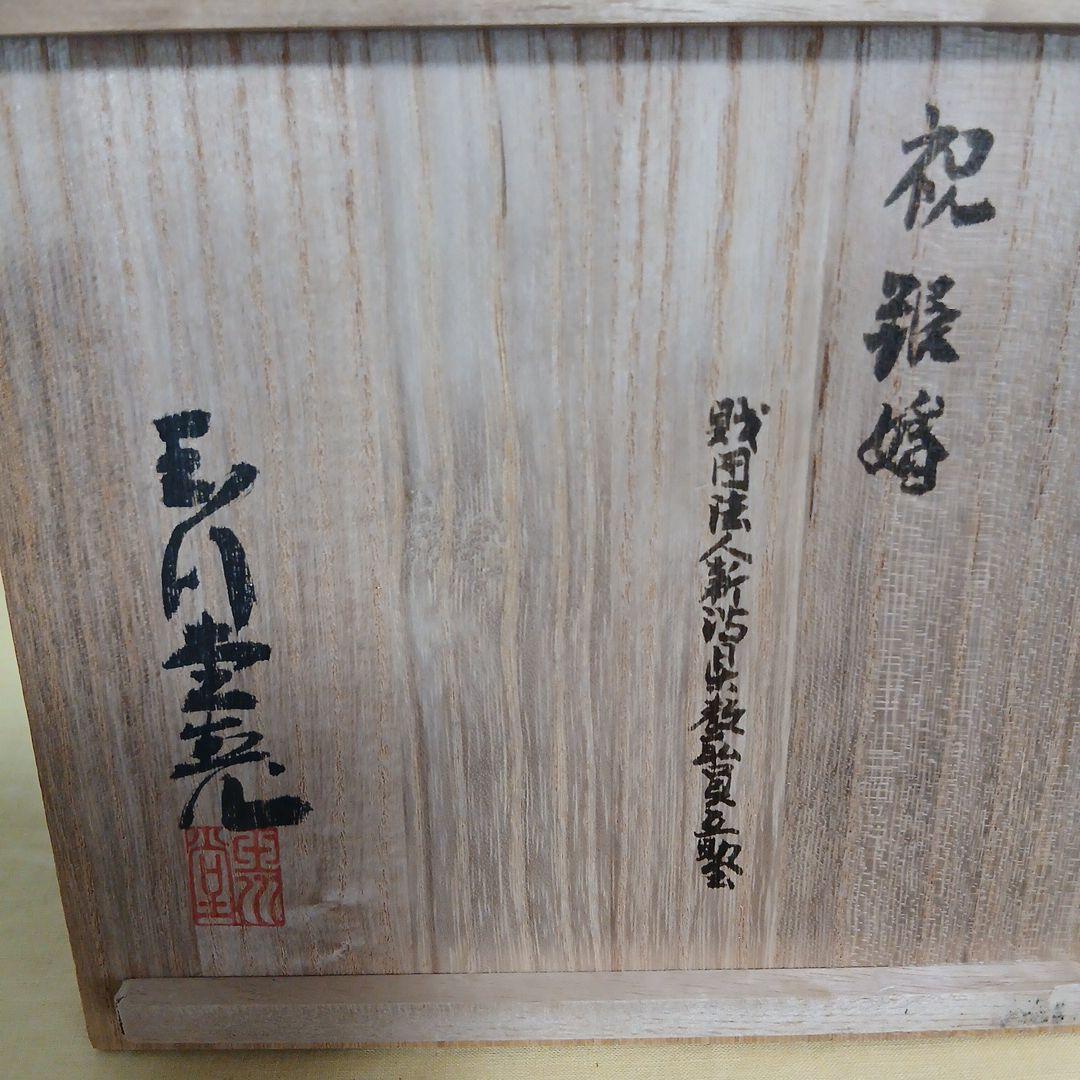 祝 銀婚
財団法人新潟県教職員互助会
玉川堂
玉川堂